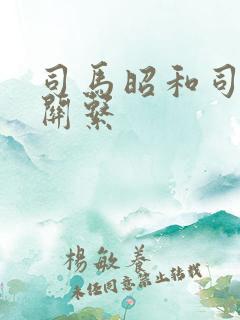 司馬昭和司
關繫
楊敏養
未經同意禁止轉載